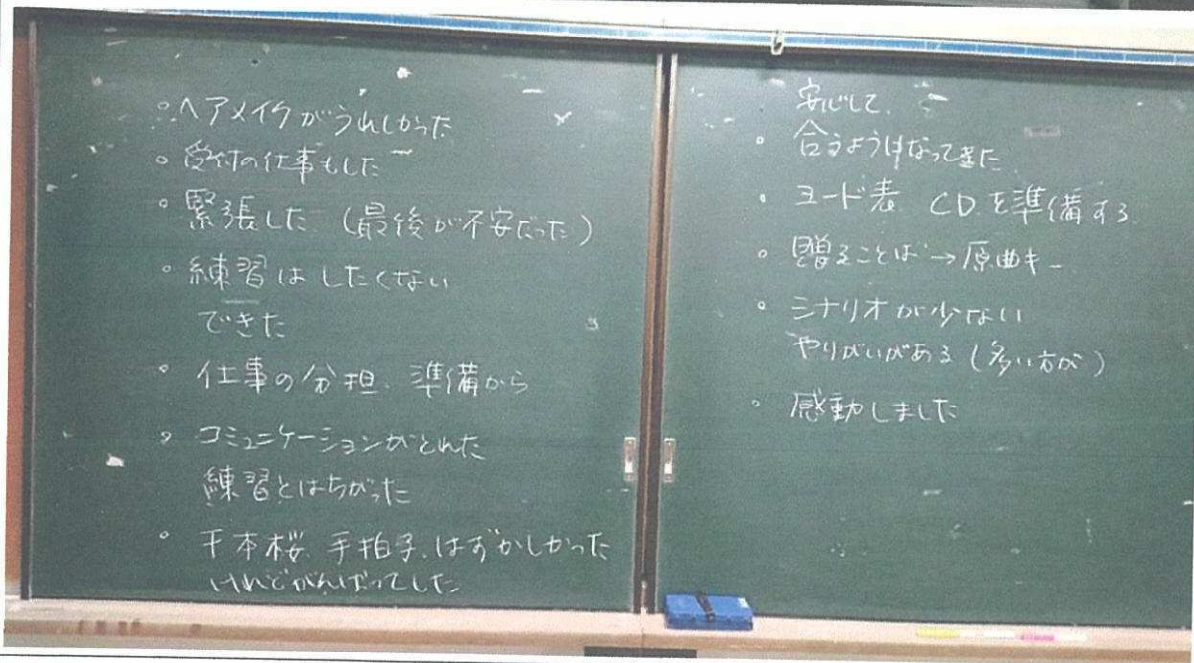 。ヘアメイクがうれしかった
。受付の仕事もした
。緊張した (最後が不安だった)
。練習はしたくない
できた
。仕事の分担、準備から
。コミュニケーションがとれた
練習とはちがった
。千本桜、手拍子、はずかしかった
けれどがんばってした
安心して、
。合うようになってきた
。コード表、CDを準備する
。贈ることば→原曲キー
。シナリオが少ない
やりがいがある (多い方が)
。感動しました